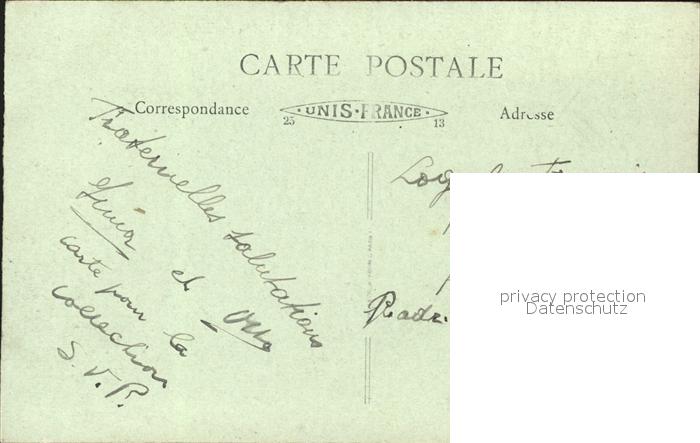 CARTE POSTALE
Correspondance
UNIS-FRANCE
25 13
Adresse
Fraternelles salutations
et une
carte pour la
collection
S.V.P.
privacy protection
Datenschutz